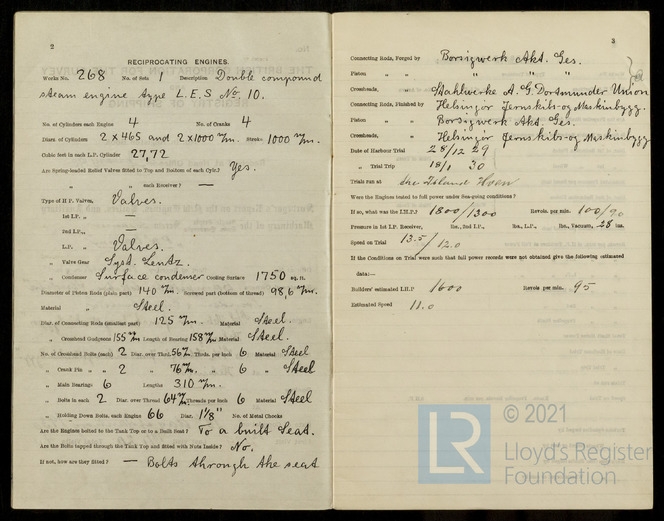 2
RECIPROCATING ENGINES.
Works No. 268 No. of Sets 1 Description Double compound
steam engine type L.E.S No. 10.
No. of Cylinders each Engine 4 No. of Cranks 4
Diars. of Cylinders 2 x 465 and 2 x 1000 m/m. Stroke 1000 m/m.
Cubic feet in each L.P. Cylinder 27,72
Are Spring-loaded Relief Valves fitted to Top and Bottom of each Cylr.? Yes.
" " each Receiver? —
Type of H.P. Valves, Valves.
" 1st I.P. " —
" 2nd I.P. " —
" L.P. " Valves.
" Valve Gear Syst. Lentz.
" Condenser Surface condenser Cooling Surface 1750 sq. ft.
Diameter of Piston Rods (plain part) 140 m/m. Screwed part (bottom of thread) 98,6 m/m.
Material " Steel.
Diar. of Connecting Rods (smallest part) 125 m/m. Material Steel.
" Crosshead Gudgeons 155 m/m Length of Bearing 158 m/m Material Steel.
No. of Crosshead Bolts (each) 2 Diar. over Thrd. 56 m/m. Thrds. per inch 6 Material Steel
" Crank Pin " " 2 " 76 m/m. " 6 " Steel
" Main Bearings 6 Lengths 310 m/m.
" Bolts in each 2 Diar. over Thread 64 m/m Threads per inch 6 Material Steel
" Holding Down Bolts, each Engine 66 Diar. 1 1/8" No. of Metal Chocks
Are the Engines bolted to the Tank Top or to a Built Seat? To a built Seat.
Are the Bolts tapped through the Tank Top and fitted with Nuts Inside? No.
If not, how are they fitted? — Bolts through the seat
3
Connecting Rods, Forged by Borsigwerk Akt. Ges.
Piston " " " " "
Crossheads, " Stahlwerke A.G. Dortmunder Union
Connecting Rods, Finished by Helsingör Jernskibs-og Maskinbygg.
Piston " " Borsigwerk Akt. Ges.
Crossheads, " Helsingör Jernskibs-og Maskinbygg
Date of Harbour Trial 28/12 29
" Trial Trip 18/1 30
Trials run at the Island Hven
Were the Engines tested to full power under Sea-going conditions?
If so, what was the I.H.P.? 1800/1300 Revols. per min. 100/90
Pressure in 1st I.P. Receiver, lbs., 2nd I.P., lbs., L.P., lbs., Vacuum, 28 ins.
Speed on Trial 13.5/12.0
If the Conditions on Trial were such that full power records were not obtained give the following estimated
data:—
Builders' estimated I.H.P. 1600 Revols. per min. 95
Estimated Speed 11.0
© 2021
LR
Lloyd's Register
Foundation